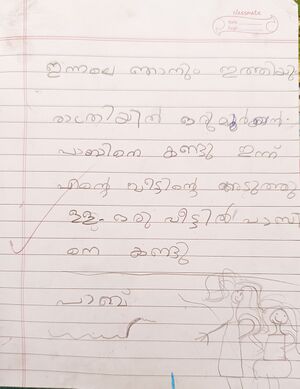 classmate
Date
Page
ഇന്നലെ ഞാനും ഇത്തിയു
രാത്രിയിൽ ഒരു മൂർക്കൻ
പാബിനെ കണ്ടു ഇന്ന്
എന്റെ വീട്ടിന്റെ അടുത്തു
ള്ള ഒരു വീട്ടിൽ പാമ്പി
നെ കണ്ടു
പാബ്